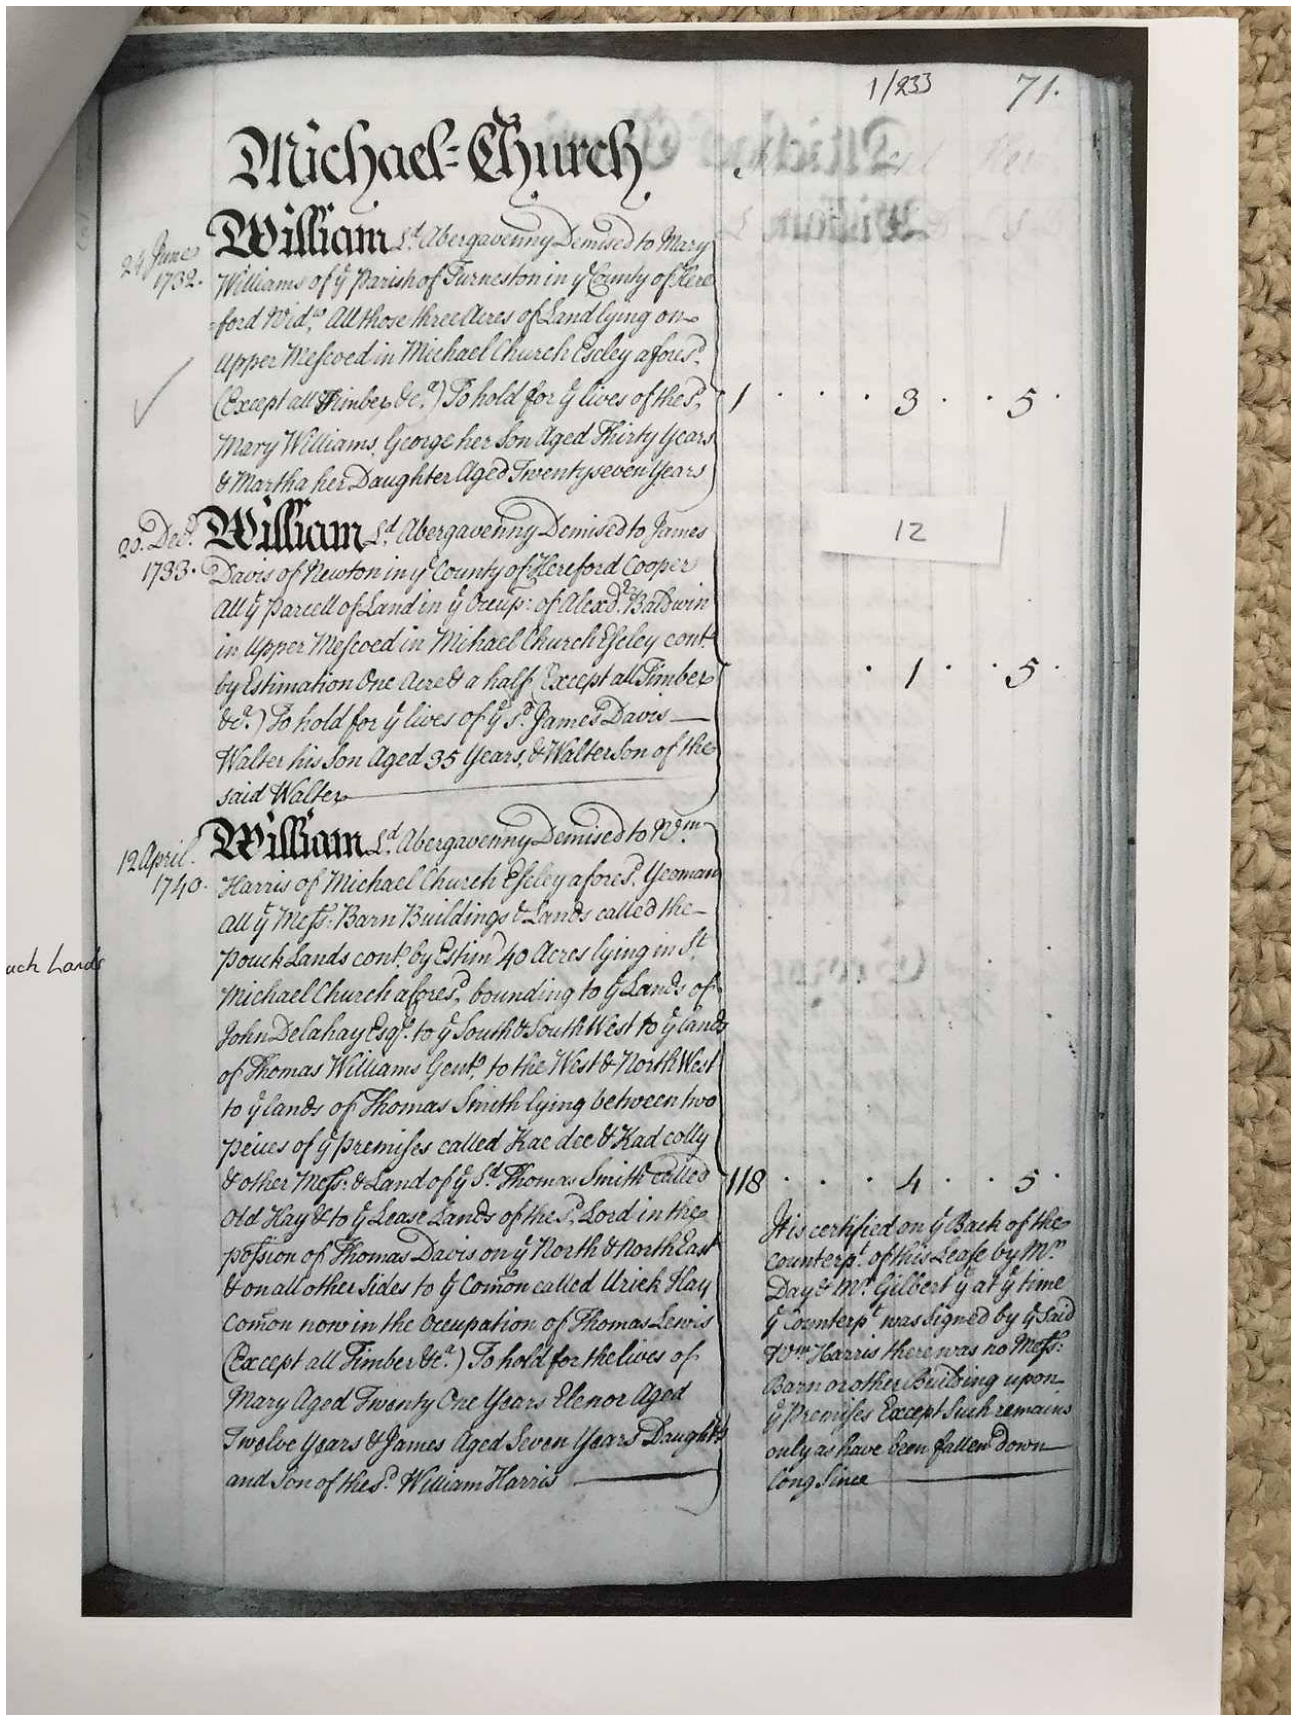 1/233 71.
Michael=Church
24 June
1732.
William Ld. Abergavenny Demised to Mary
Williams of ye Parish of Turneston in ye County of Here
=ford Widw. All those three Acres of Land lying on
Upper Mescoed in Michael Church Escley aforesd.
(Except all Timber &ca.) To hold for ye lives of the sd.
Mary Williams, George her Son Aged Thirty Years
& Martha her Daughter Aged Twentyseven Years
1 . . . 3 . . 5 .
12
20. Decr.
1733.
William Ld. Abergavenny Demised to James
Davis of Newton in ye County of Hereford Cooper
All ye Parcell of Land in ye Occup: of Alexdr. Baldwin
in Upper Mescoed in Mihael Church Escley cont.
by Estimation One Acre & a half (Except all Timber
&ca.) To hold for ye lives of ye sd. James Davis
Walter his Son Aged 35 Years, & Walter Son of the
said Walter
. 1 . . 5 .
12 April.
1740.
William Ld. Abergavenny Demised to Wm.
Harris of Michael Church Escley aforesd. Yeoman
All ye Mess: Barn Buildings & Lands called the
Pouck Lands cont. by Estimn 40 Acres lying in St.
Michael Church aforesd. bounding to ye Lands of
John Delahay Esqr. to ye South & South West to ye lands
of Thomas Williams Gent. to the West & North West
to ye lands of Thomas Smith lying between two
peices of ye premises called Kae dee & Kad colly
& other Mess: & Land of ye Sd. Thomas Smith called
Old Hay & to ye Lease Lands of the sd. Lord in the
possion of Thomas Davis on ye North & North East
& on all other Sides to ye Comon called Urick Hay
Comon now in the Occupation of Thomas Lewis
(Except all Timber &ca.) To hold for the lives of
Mary Aged Twenty One Years Elenor Aged
Twelve Years & James Aged Seven Years Daughtrs
and Son of the sd. William Harris
uck Lands
118 . . . 4 . . 5 .
It is certified on ye Back of the
Counterpt. of this Lease by Mr.
Day & Mr. Gilbert yt at ye time
ye Counterpt was signed by ye said
Wm Harris there was no Mess:
Barn or other Building upon
ye Premises Except Such remains
only as have been fallen down
long Since